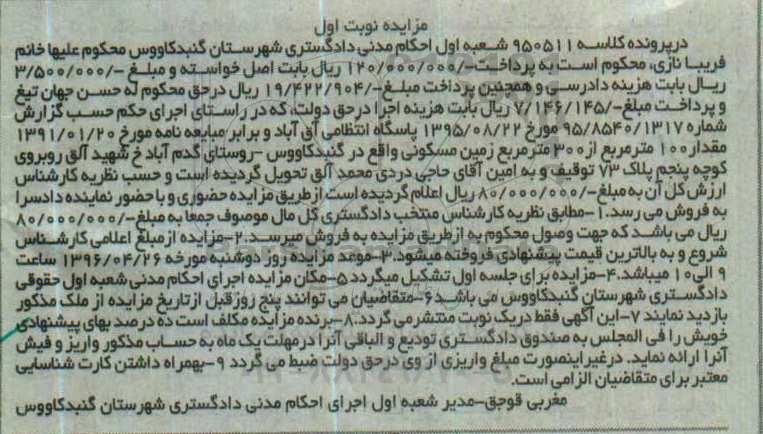 مزایده نوبت اول
درپرونده کلاسه ۹۵۰۵۱۱ شعبه اول احکام مدنی دادگستری شهرستان گنبدکاووس محکوم علیها خانم
فریبا نازی، محکوم است به پرداخت-/۱۲۰/۰۰۰/۰۰۰ ریال بابت اصل خواسته و مبلغ -/۳/۵۰۰/۰۰۰
ریال بابت هزینه دادرسی و همچنین پرداخت مبلغ-/۱۹/۴۲۲/۹۰۴ ریال درحق محکوم له حسن جهان تیغ
و پرداخت مبلغ-/۷/۱۴۶/۱۴۵ ریال بابت هزینه اجرا درحق دولت، که در راستای اجرای حکم حسب گزارش
شماره ۹۵/۸۵۴۰/۱۳۱۷ مورخ ۱۳۹۵/۰۸/۲۲ پاسگاه انتظامی آق آباد و برابر مبایعه نامه مورخ ۱۳۹۱/۰۱/۲۰
مقدار۱۰۰ مترمربع از۳۰۰ مترمربع زمین مسکونی واقع در گنبدکاووس -روستای گدم آباد خ شهید آلق روبروی
کوچه پنجم پلاک ۷۳ توقیف و به امین آقای حاجی دردی محمد آلق تحویل گردیده است و حسب نظریه کارشناس
ارزش کل آن به مبلغ-/۸۰/۰۰۰/۰۰۰ ریال اعلام گردیده است ازطریق مزایده حضوری و با حضور نماینده دادسرا
به فروش می رسد.۱-مطابق نظریه کارشناس منتخب دادگستری کل مال موصوف جمعا به مبلغ-/۸۰/۰۰۰/۰۰۰
ریال می باشد که جهت وصول محکوم به ازطریق مزایده به فروش میرسد.۲-مزایده ازمبلغ اعلامی کارشناس
شروع و به بالاترین قیمت پیشنهادی فروخته میشود.۳-موعد مزایده روز دوشنبه مورخه ۱۳۹۶/۰۴/۲۶ ساعت
۹ الی۱۰ میباشد.۴-مزایده برای جلسه اول تشکیل میگردد۵-مکان مزایده اجرای احکام مدنی شعبه اول حقوقی
دادگستری شهرستان گنبدکاووس می باشد۶-متقاضیان می توانند پنج روزقبل ازتاریخ مزایده از ملک مذکور
بازدید نمایند ۷-این آگهی فقط دریک نوبت منتشرمی گردد.۸-برنده مزایده مکلف است ده درصد بهای پیشنهادی
خویش را فی المجلس به صندوق دادگستری تودیع و الباقی آنرا درمهلت یک ماه به حساب مذکور واریز و فیش
آنرا ارائه نماید. درغیراینصورت مبلغ واریزی از وی درحق دولت ضبط می گردد ۹-بهمراه داشتن کارت شناسایی
معتبر برای متقاضیان الزامی است.
مغربی قوجق-مدیر شعبه اول اجرای احکام مدنی دادگستری شهرستان گنبدکاووس